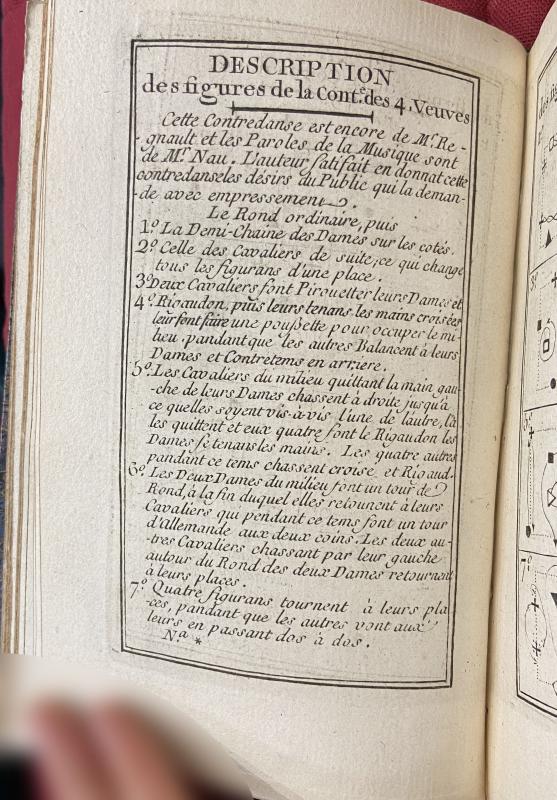 DESCRIPTION
des figures de la Cont.e des 4. Veuves
Cette Contredanse est encore de Mr. Re-
gnault et les Paroles de la Musique sont
de Mr. Nau. L'auteur satisfait en donnat cette
contredanse les désirs du Public qui la deman-
de avec empressement.
Le Rond ordinaire, puis
1.o La Demi-Chaine des Dames sur les cotés.
2.o Celle des Cavaliers de suite, ce qui change
tous les figurans d'une place.
3.o Deux Cavaliers font Pirouetter leurs Dames et
4.o Rigaudon, puis leurs tenans les mains croisées
leur font faire une poussette pour occuper le mi-
lieu, pandant que les autres Balancent à leurs
Dames et Contretems en arriere.
5.o Les Cavaliers du milieu quittant la main gau-
-che de leurs Dames chassent à droite jusqu'à
ce quelles soyent vis-à-vis l'une de l'autre, là
les quittent et eux quatre font le Rigaudon les
Dames se tenans les mains. Les quatre autres
pandant ce tems chassent croisé et Rigaud.
6.o Les Deux Dames du milieu font un tour de
Rond, à la fin duquel elles retounent à leurs
Cavaliers qui pendant ce tems font un tour
d'allemande aux deux coins. Les deux au-
-tres Cavaliers chassant par leur gauche
autour du Rond des deux Dames retournent
à leurs places.
7.o Quatre figurans tournent à leurs pla
-ces, pandant que les autres vont aux
leurs en passant dos à dos.
Na *